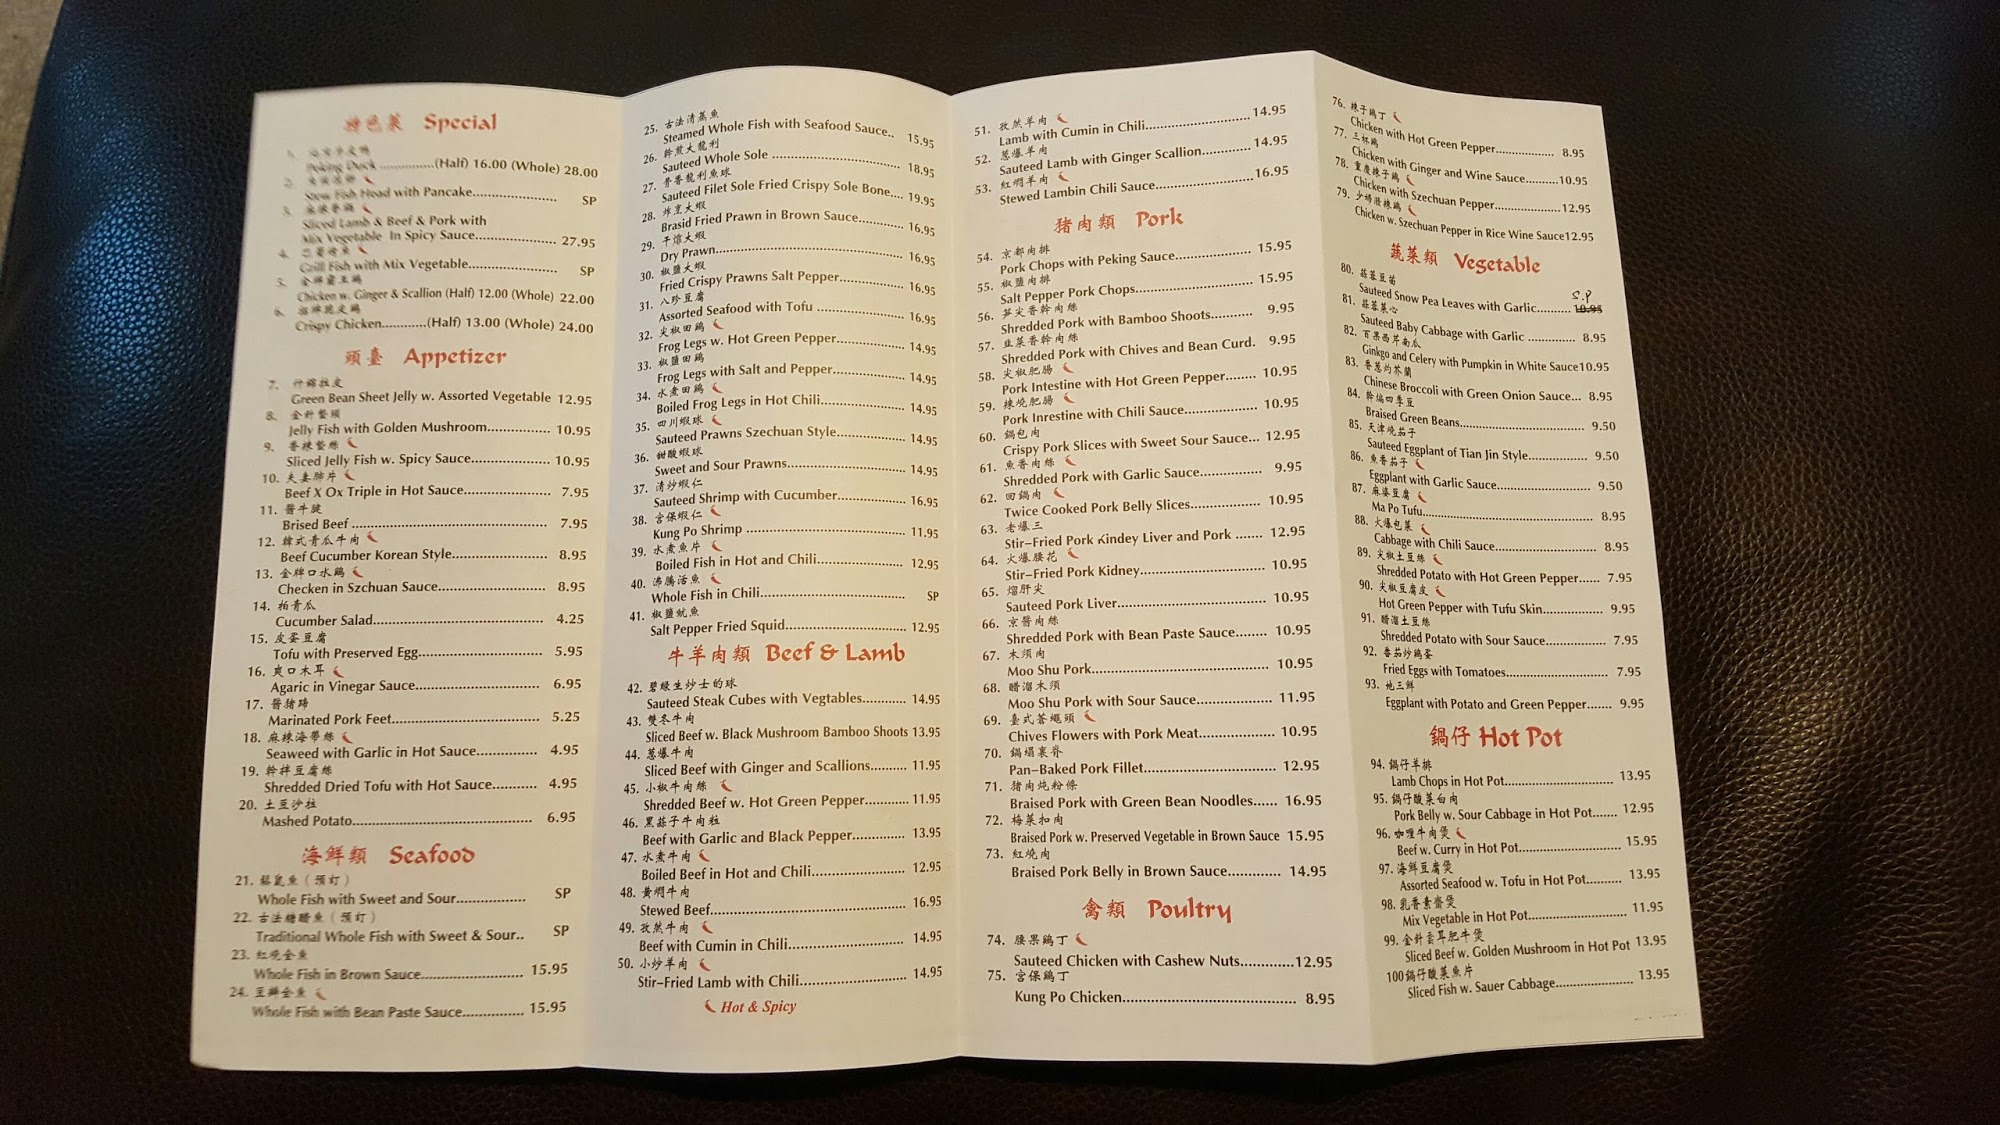 特色菜 Special
1.
Peking Duck ..............(Half) 16.00 (Whole) 28.00
2.
Stew Fish Head with Pancake.................... SP
3. 麻辣香鍋
Sliced Lamb & Beef & Pork with
Mix Vegetable In Spicy Sauce.................... 27.95
4.
Grill Fish with Mix Vegetable..................... SP
5. 金牌霸王鷄
Chicken w. Ginger & Scallion (Half) 12.00 (Whole) 22.00
6. 招牌脆皮鷄
Crispy Chicken............(Half) 13.00 (Whole) 24.00
頭臺 Appetizer
7. 什錦拉皮
Green Bean Sheet Jelly w. Assorted Vegetable 12.95
8. 金針蜇頭
Jelly Fish with Golden Mushroom................ 10.95
9. 香辣蜇絲
Sliced Jelly Fish w. Spicy Sauce.................... 10.95
10. 夫妻肺片
Beef X Ox Triple in Hot Sauce...................... 7.95
11. 醬牛腱
Brised Beef ................................................ 7.95
12. 韓式青瓜牛肉
Beef Cucumber Korean Style........................ 8.95
13. 金牌口水鷄
Checken in Szchuan Sauce........................... 8.95
14. 拍青瓜
Cucumber Salad.......................................... 4.25
15. 皮蛋豆腐
Tofu with Preserved Egg............................... 5.95
16. 爽口木耳
Agaric in Vinegar Sauce............................... 6.95
17. 醬猪蹄
Marinated Pork Feet.................................... 5.25
18. 麻辣海帶絲
Seaweed with Garlic in Hot Sauce............... 4.95
19. 幹拌豆腐絲
Shredded Dried Tofu with Hot Sauce........... 4.95
20. 土豆沙拉
Mashed Potato............................................ 6.95
海鮮類 Seafood
21. 鬆鼠魚（預訂）
Whole Fish with Sweet and Sour................. SP
22. 古法糖醋魚（預訂）
Traditional Whole Fish with Sweet & Sour.. SP
23. 紅燒全魚
Whole Fish in Brown Sauce......................... 15.95
24. 豆瓣全魚
Whole Fish with Bean Paste Sauce............... 15.95
25. 古法清蒸魚
Steamed Whole Fish with Seafood Sauce.. 15.95
26. 幹煎大龍利
Sauteed Whole Sole ................................ 18.95
27. 骨香龍利魚球
Sauteed Filet Sole Fried Crispy Sole Bone.... 19.95
28. 炸烹大蝦
Brasid Fried Prawn in Brown Sauce............ 16.95
29. 干㸆大蝦
Dry Prawn................................................ 16.95
30. 椒鹽大蝦
Fried Crispy Prawns Salt Pepper................. 16.95
31. 八珍豆腐
Assorted Seafood with Tofu ....................... 16.95
32. 尖椒田鷄
Frog Legs w. Hot Green Pepper.................. 14.95
33. 椒鹽田鷄
Frog Legs with Salt and Pepper................... 14.95
34. 水煮田鷄
Boiled Frog Legs in Hot Chili...................... 14.95
35. 四川蝦球
Sauteed Prawns Szechuan Style.................. 14.95
36. 甜酸蝦球
Sweet and Sour Prawns.............................. 14.95
37. 清炒蝦仁
Sauteed Shrimp with Cucumber.................. 16.95
38. 宫保蝦仁
Kung Po Shrimp ........................................ 11.95
39. 水煮魚片
Boiled in Hot and Chili...................... 12.95
40. 沸騰活魚
Whole Fish in Chili..................................... SP
41. 椒鹽魷魚
Salt Pepper Fried Squid.............................. 12.95
牛羊肉類 Beef & Lamb
42. 碧緑生炒士的球
Sauteed Steak Cubes with Vegtables............ 14.95
43. 雙冬牛肉
Sliced Beef w. Black Mushroom Bamboo Shoots 13.95
44. 葱爆牛肉
Sliced Beef with Ginger and Scallions.......... 11.95
45. 小椒牛肉絲
Shredded Beef w. Hot Green Pepper............ 11.95
46. 黑蒜子牛肉粒
Beef with Garlic and Black Pepper............. 13.95
47. 水煮牛肉
Boiled Beef in Hot and Chili....................... 12.95
48. 黄燜牛肉
Stewed Beef............................................... 16.95
49. 孜然牛肉
Beef with Cumin in Chili............................ 14.95
50. 小炒羊肉
Stir-Fried Lamb with Chili.......................... 14.95
Hot & Spicy
51. 孜然羊肉
Lamb with Cumin in Chili............................ 14.95
52. 葱爆羊肉
Sauteed Lamb with Ginger Scallion............. 14.95
53. 紅燜羊肉
Stewed Lambin Chili Sauce......................... 16.95
猪肉類 Pork
54. 京都肉排
Pork Chops with Peking Sauce..................... 15.95
55. 椒鹽肉排
Salt Pepper Pork Chops.............................. 15.95
56. 笋尖香幹肉絲
Shredded Pork with Bamboo Shoots........... 9.95
57. 韭菜香幹肉絲
Shredded Pork with Chives and Bean Curd. 9.95
58. 尖椒肥腸
Pork Intestine with Hot Green Pepper........ 10.95
59. 辣燒肥腸
Pork Inrestine with Chili Sauce................... 10.95
60. 鍋包肉
Crispy Pork Slices with Sweet Sour Sauce... 12.95
61. 魚香肉絲
Shredded Pork with Garlic Sauce................ 9.95
62. 回鍋肉
Twice Cooked Pork Belly Slices.................. 10.95
63. 老爆三
Stir-Fried Pork Kindey Liver and Pork ....... 12.95
64. 火爆腰花
Stir-Fried Pork Kidney................................ 10.95
65. 熘肝尖
Sauteed Pork Liver..................................... 10.95
66. 京醬肉絲
Shredded Pork with Bean Paste Sauce........ 10.95
67. 木須肉
Moo Shu Pork............................................ 10.95
68. 醋溜木須
Moo Shu Pork with Sour Sauce................... 11.95
69. 臺式蒼蠅頭
Chives Flowers with Pork Meat................... 10.95
70. 鍋塌裏脊
Pan-Baked Pork Fillet................................. 12.95
71. 猪肉炖粉條
Braised Pork with Green Bean Noodles...... 16.95
72. 梅菜扣肉
Braised Pork w. Preserved Vegetable in Brown Sauce 15.95
73. 紅燒肉
Braised Pork Belly in Brown Sauce............. 14.95
禽類 Poultry
74. 腰果鷄丁
Sauteed Chicken with Cashew Nuts.............12.95
75. 宫保鷄丁
Kung Po Chicken........................................... 8.95
76. 辣子鷄丁
Chicken with Hot Green Pepper.................. 8.95
77. 三杯鷄
Chicken with Ginger and Wine Sauce..........10.95
78. 重慶辣子鷄
Chicken with Szechuan Pepper.....................12.95
79. 少婦潑辣鷄
Chicken w. Szechuan Pepper in Rice Wine Sauce12.95
蔬菜類 Vegetable
80. 蒜蓉豆苗
S.P
Sauteed Snow Pea Leaves with Garlic.......... 10.95
81. 蒜蓉菜心
Sauteed Baby Cabbage with Garlic .............. 8.95
82. 百果西芹南瓜
Ginkgo and Celery with Pumpkin in White Sauce10.95
83. 香葱灼芥蘭
Chinese Broccoli with Green Onion Sauce... 8.95
84. 幹煸四季豆
Braised Green Beans.................................... 9.50
85. 天津燒茄子
Sauteed Eggplant of Tian Jin Style............... 9.50
86. 魚香茄子
Eggplant with Garlic Sauce......................... 9.50
87. 麻婆豆腐
Ma Po Tufu................................................ 8.95
88. 火爆包菜
Cabbage with Chili Sauce........................... 8.95
89. 尖椒土豆絲
Shredded Potato with Hot Green Pepper...... 7.95
90. 尖椒豆腐皮
Hot Green Pepper with Tufu Skin................. 9.95
91. 醋溜土豆絲
Shredded Potato with Sour Sauce................ 7.95
92. 番茄炒鷄蛋
Fried Eggs with Tomatoes............................ 7.95
93. 地三鮮
Eggplant with Potato and Green Pepper....... 9.95
鍋仔 Hot Pot
94. 鍋仔羊排
Lamb Chops in Hot Pot............................... 13.95
95. 鍋仔酸菜白肉
Pork Belly w. Sour Cabbage in Hot Pot....... 12.95
96. 咖喱牛肉煲
Beef w. Curry in Hot Pot............................. 15.95
97. 海鮮豆腐煲
Assorted Seafood w. Tofu in Hot Pot.......... 13.95
98. 乳香素齋煲
Mix Vegetable in Hot Pot............................ 11.95
99. 金針雲耳肥牛煲
Sliced Beef w. Golden Mushroom in Hot Pot 13.95
100 鍋仔酸菜魚片
Sliced Fish w. Sauer Cabbage...................... 13.95